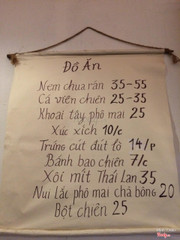 Đồ Ăn
Nem chua rán 35-55
Cá viên chiên 25-35
Khoai tây, phô mai 25
Xúc xích 10/c
Trứng cút đút lò 14/p
Bánh bao chiên 7/c
Xôi mít Thái Lan 35
Nui lắc phô mai chà bông 20
Bột chiên 25